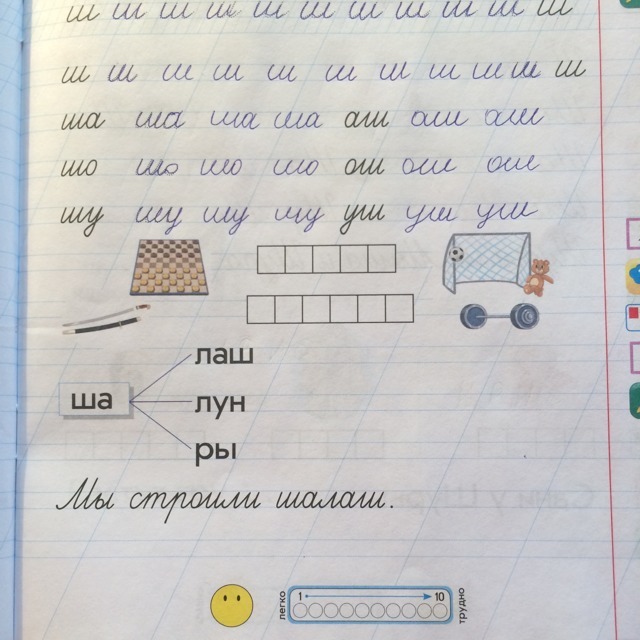 ш ш ш ш ш ш ш ш ш ш ш ш
ш ш ш ш ш ш ш ш ш ш ш ш
ша ша ша ша аш аш аш
шо шо шо шо ош ош ош
шу шу шу шу уш уш уш
лаш
ша лун
ры
Мы строили шалаш.
легко 1 10 трудно